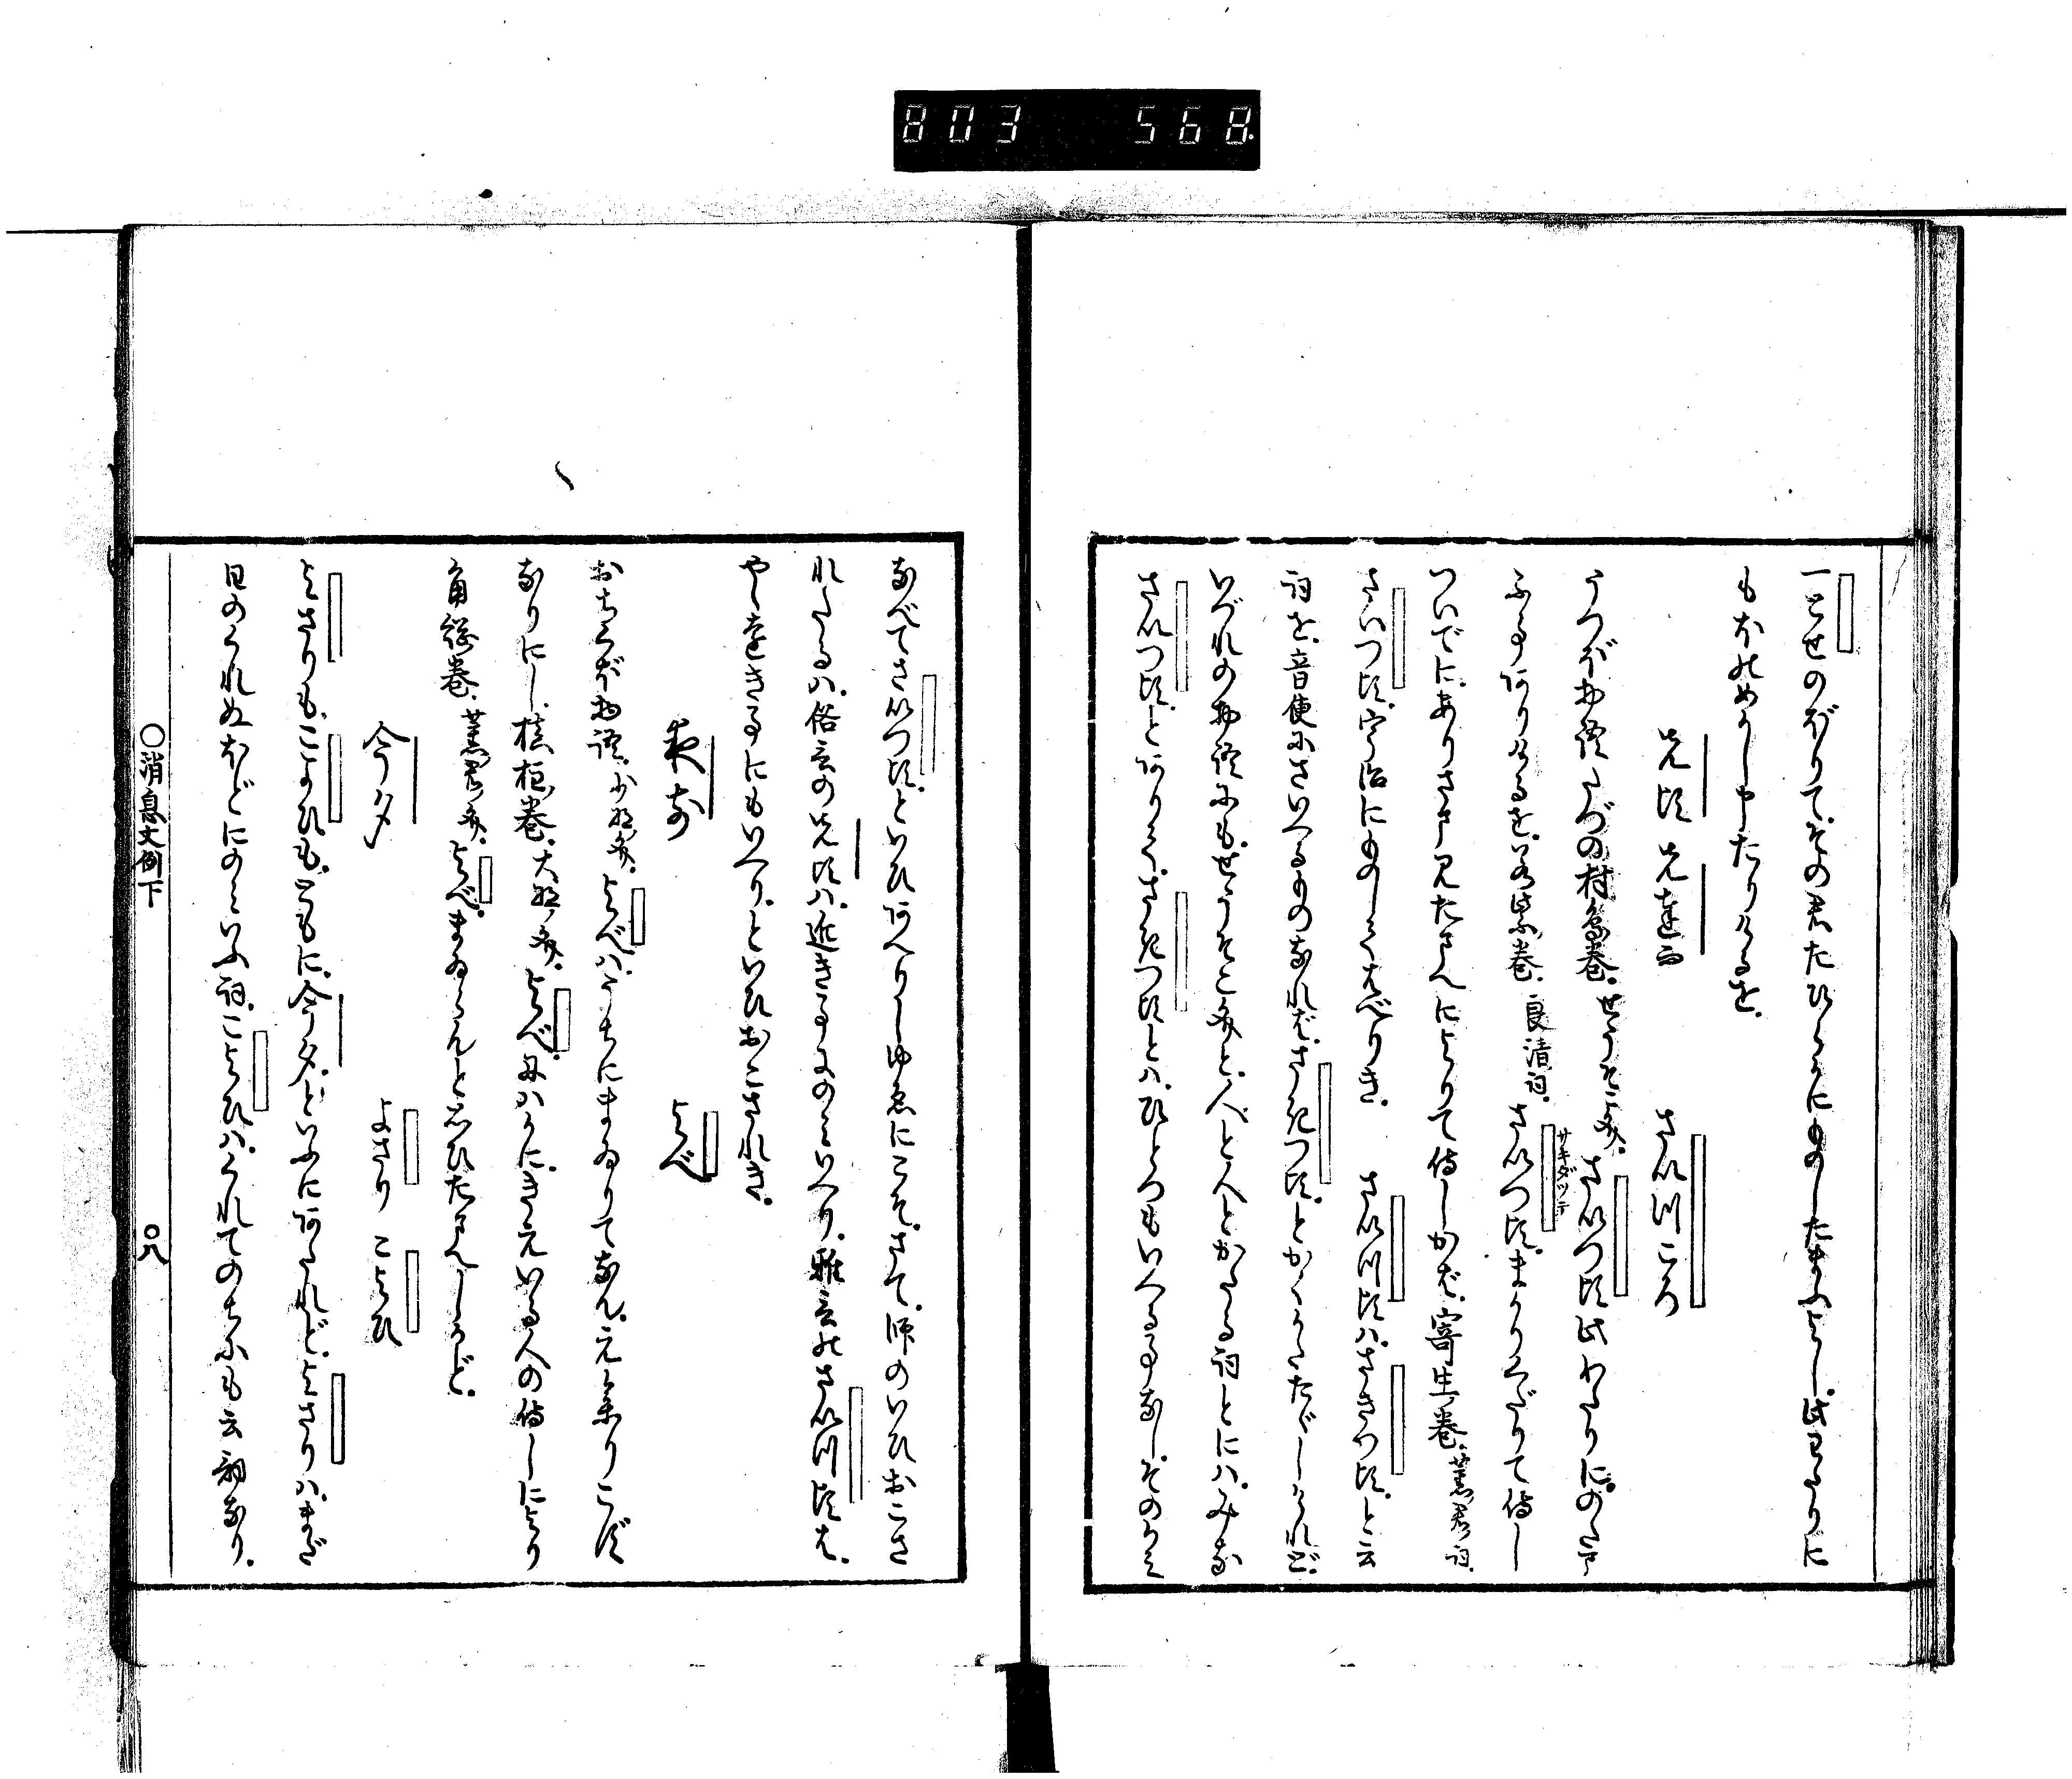 803 568
一とせのぼりて、その君たひらかにものしたまふよし、此わたりに
もほのめかし申したりけるを、
先頃 先達而 さいつころ
うつぼ物語たづの村鳥巻、せうそこ文、さいつ頃此わたりに、のたま
ふ事ありけるを、若紫巻、良清詞、さいつ頃、まかりくだりて侍し
サキダツテ
ついでに、ありさま見たまへによりて侍しかば、寄生巻、薫君詞、
さいつ頃、宇治にものしてはべりき、 さいつ頃は、さきつ頃、と云
詞を、音便にさいへるものなれば、さきつ頃、とかくかたゞしけれど、
いづれの物語にも、せうそこ文と、人と人とかたる詞とには、みな
さいつ頃、とありて、さきつ頃とは、ひとつもいへる事なし、そのかみ
なべてさいつ頃、といひあへりしゆゑにこそ、さて、師のいひおこさ
れたるは、俗言の先頃は、近き事にのみいへり、雅言のさいつ頃は、
やゝ遠き事にもいへり、といひおこされき、
夜前 よべ
おちくぼ物語、少将文、よべは、うちにまゐりてなん、え参りこず
なりにし、槙柱巻、大将文、よべ、にはかに、きえいる人の侍しにより
角総巻、薫君文、よべ、まゐらんと思ひたまへしかど、
今夕 よさり こよひ
よさりも、こよひも、ともに、今夕、といふにあたれど、よさりは、まだ
日のくれぬほどにのみいふ詞、こよひは、くれてのちにも云詞なり、
○消息文例下 ○八